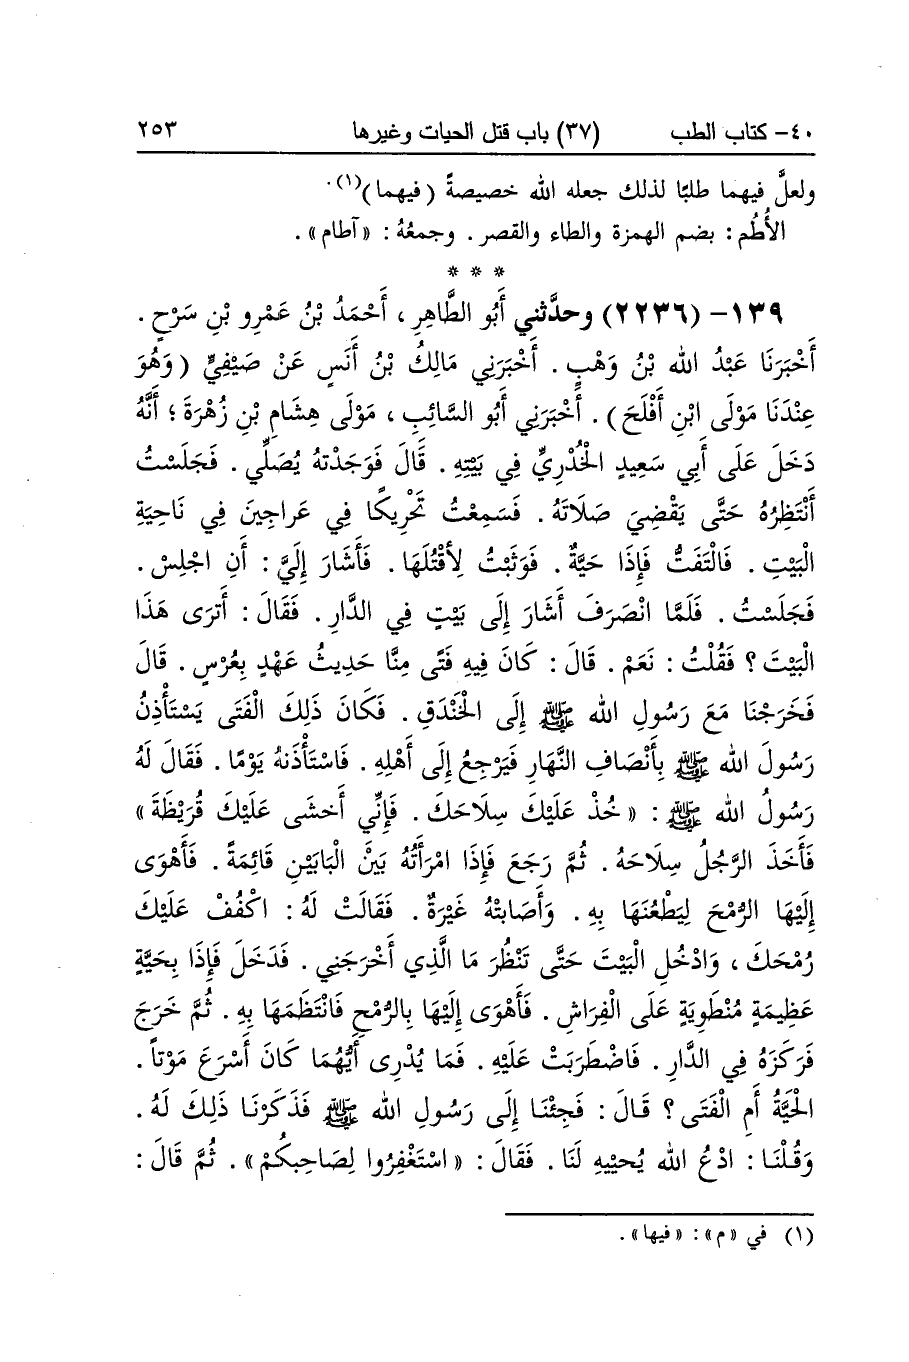 ٤٠- كتاب الطب (٣٧) باب قتل الحيات وغيرها ٢٥٣
ولعلَّ فيهما طلبًا لذلك جعله الله خصيصةً (فيهما)(١).
الأُطُم: بضم الهمزة والطاء والقصر. وجمعُهُ: «آطام».
* * *
١٣٩- (٢٢٣٦) وحدَّثني أَبُو الطَّاهِرِ، أَحْمَدُ بْنُ عَمْرِو بْنِ سَرْحٍ.
أَخْبَرَنَا عَبْدُ الله بْنُ وَهْبٍ. أَخْبَرَنِي مَالِكُ بْنُ أَنَسٍ عَنْ صَيْفِيٍّ (وَهُوَ
عِنْدَنَا مَوْلَى ابْنِ أَفْلَحَ). أَخْبَرَنِي أَبُو السَّائِبِ، مَوْلَى هِشَامِ بْنِ زُهْرَةَ؛ أَنَّهُ
دَخَلَ عَلَى أَبِي سَعِيدٍ الْخُدْرِيِّ فِي بَيْتِهِ. قَالَ فَوَجَدْتهُ يُصَلِّي. فَجَلَسْتُ
أَنْتَظِرُهُ حَتَّى يَقْضِيَ صَلَاتَهُ. فَسَمِعْتُ تَحْرِيكًا فِي عَرَاجِينَ فِي نَاحِيَةِ
الْبَيْتِ. فَالْتَفَتُّ فَإِذَا حَيَّةٌ. فَوَثَبْتُ لِأَقْتُلَهَا. فَأَشَارَ إِلَيَّ: أَنِ اجْلِسْ.
فَجَلَسْتُ. فَلَمَّا انْصَرَفَ أَشَارَ إِلَى بَيْتٍ فِي الدَّارِ. فَقَالَ: أَترَى هَذَا
الْبَيْتَ؟ فَقُلْتُ: نَعَمْ. قَالَ: كَانَ فِيهِ فَتًى مِنَّا حَدِيثُ عَهْدٍ بِعُرْسٍ. قَالَ
فَخَرَجْنَا مَعَ رَسُولِ الله ﷺ إِلَى الْخَنْدَقِ. فَكَانَ ذَلِكَ الْفَتَى يَسْتَأْذِنُ
رَسُولَ الله ﷺ بِأَنْصَافِ النَّهَارِ فَيَرْجِعُ إِلَى أَهْلِهِ. فَاسْتَأْذَنهُ يَوْمًا. فَقَالَ لَهُ
رَسُولُ الله ﷺ: «خُذْ عَلَيْكَ سِلَاحَكَ. فَإِنِّي أَخشَى عَلَيْكَ قُرَيْظَةَ»
فَأَخَذَ الرَّجُلُ سِلَاحَهُ. ثُمَّ رَجَعَ فَإِذَا امْرَأَتُهُ بَيْنَ الْبَابَيْنِ قَائِمَةً. فَأَهْوَى
إِلَيْهَا الرُّمْحَ لِيَطْعُنَهَا بِهِ. وَأَصَابتْهُ غَيْرَةٌ. فَقَالَتْ لَهُ: اكْفُفْ عَلَيْكَ
رُمْحَكَ، وَادْخُلِ الْبَيْتَ حَتَّى تَنْظُرَ مَا الَّذِي أَخْرَجَنِي. فَدَخَلَ فَإِذَا بِحَيَّةٍ
عَظِيمَةٍ مُنْطَوِيَةٍ عَلَى الْفِرَاشِ. فَأَهْوَى إِلَيْهَا بِالرُّمْحِ فَانْتَظَمَهَا بِهِ. ثُمَّ خَرَجَ
فَرَكَزَهُ فِي الدَّارِ. فَاضْطَرَبَتْ عَلَيْهِ. فَمَا يُدْرَى أَيُّهُمَا كَانَ أَسْرَعَ مَوْتاً.
الْحَيَّةُ أَمِ الْفَتَى؟ قَالَ: فَجِئْنَا إِلَى رَسُولِ الله ﷺ فَذَكَرْنَا ذَلِكَ لَهُ.
وَقُلْنَا: ادْعُ الله يُحيِيهِ لَنَا. فَقَالَ: «اسْتَغْفِرُوا لِصَاحِبِكُمْ». ثُمَّ قَالَ:
(١) في «م»: «فيها».